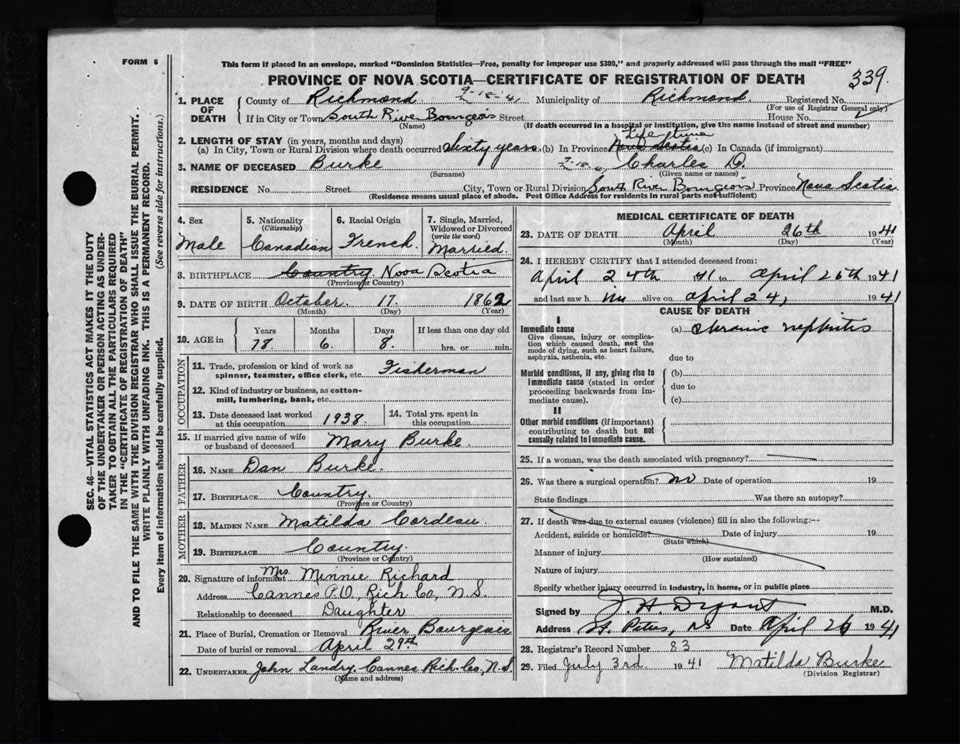 FORM 6
This form if placed in an envelope, marked "Dominion Statistics—Free, penalty for improper use $300," and properly addressed will pass through the mail "FREE"
PROVINCE OF NOVA SCOTIA—CERTIFICATE OF REGISTRATION OF DEATH
339.
SEC. 46—VITAL STATISTICS ACT MAKES IT THE DUTY
OF THE UNDERTAKER OR PERSON ACTING AS UNDER-
TAKER TO OBTAIN ALL THE PARTICULARS REQUIRED
IN THE "CERTIFICATE OF REGISTRATION OF DEATH"
AND TO FILE THE SAME WITH THE DIVISION REGISTRAR WHO SHALL ISSUE THE BURIAL PERMIT.
WRITE PLAINLY WITH UNFADING INK. THIS IS A PERMANENT RECORD.
Every item of information should be carefully supplied. (See reverse side for instructions.)
1. PLACE OF DEATH County of Richmond 9-18-41 Municipality of Richmond. Registered No.
(For use of Registrar General only)
If in City or Town South River Bourgeois Street House No.
(Name) (If death occurred in a hospital or institution, give the name instead of street and number)
2. LENGTH OF STAY (in years, months and days) Life time
(a) In City, Town or Rural Division where death occurred Sixty years. (b) In Province Nova Scotia (c) In Canada (if immigrant)
3. NAME OF DECEASED Burke 9-18- Charles D.
(Surname) (Given name or names)
RESIDENCE No. Street City, Town or Rural Division South River Bourgeois Province Nova Scotia
(Residence means usual place of abode. Post Office Address for residents in rural parts not sufficient)
4. Sex Male
5. Nationality (Citizenship) Canadian
6. Racial Origin French.
7. Single, Married, Widowed or Divorced (write the word) Married.
8. BIRTHPLACE Country Nova Scotia
(Province or Country)
9. DATE OF BIRTH October. 17. 1862
(Month) (Day) (Year)
10. AGE in Years 78 Months 6. Days 8. If less than one day old
hrs. or min.
OCCUPATION
11. Trade, profession or kind of work as Fisherman
spinner, teamster, office clerk, etc.
12. Kind of industry or business, as cotton-
mill, lumbering, bank, etc.
13. Date deceased last worked at this occupation 1938. 14. Total yrs. spent in this occupation
15. If married give name of wife or husband of deceased Mary Burke.
FATHER
16. NAME Dan Burke.
17. BIRTHPLACE Country.
(Province or Country)
MOTHER
18. MAIDEN NAME Matilda Cordeau.
19. BIRTHPLACE Country.
(Province or Country)
20. Signature of informant Mrs. Minnie Richard
Address Cannes P.O., Rich Co, N.S.
Relationship to deceased Daughter
21. Place of Burial, Cremation or Removal River Bourgeois
Date of burial or removal April 29th
22. UNDERTAKER John Landry. Cannes Rich. Co, N.S.
(Name and address)
MEDICAL CERTIFICATE OF DEATH
23. DATE OF DEATH April 26th 1941
(Month) (Day) (Year)
24. I HEREBY CERTIFY that I attended deceased from:
April 24th 41 to April 26th 1941
and last saw him alive on April 24, 1941
CAUSE OF DEATH
I
Immediate cause (a) Chronic nephritis
Give disease, injury or complica-
tion which caused death, not the
mode of dying, such as heart failure,
asphyxia, asthenia, etc. due to
Morbid conditions, if any, giving rise to (b)
immediate cause (stated in order due to
proceeding backwards from im-
mediate cause). (c)
II
Other morbid conditions (if important)
contributing to death but not
causally related to immediate cause.
25. If a woman, was the death associated with pregnancy?
26. Was there a surgical operation? no Date of operation 19
State findings Was there an autopsy?
27. If death was due to external causes (violence) fill in also the following:—
Accident, suicide or homicide? Date of injury 19
(State which)
Manner of injury
(How sustained)
Nature of injury
Specify whether injury occurred in industry, in home, or in public place
Signed by M.D.
Address St. Peters, NS Date April 26 1941
28. Registrar's Record Number 83
29. Filed July 3rd. 1941 Matilda Burke
(Division Registrar)